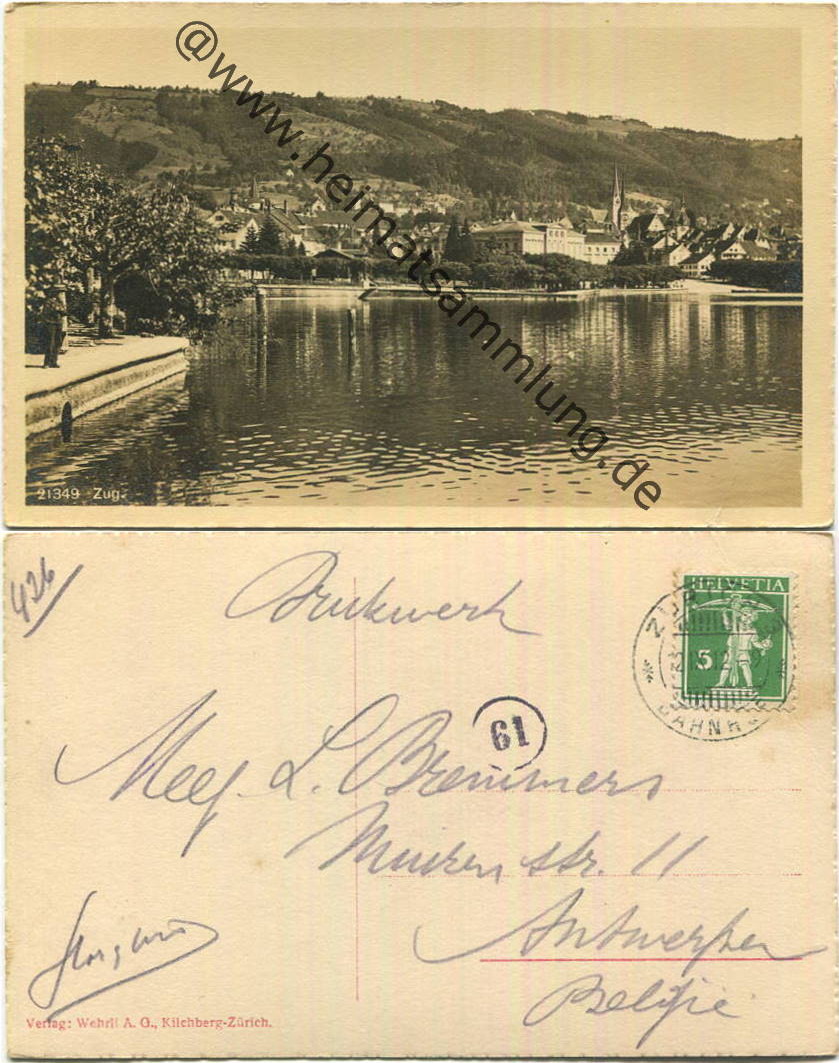 @www.heimatsammlung.de
21349 Zug.
426
Drukwerk
HELVETIA
5
BAHNHOF
61
Mej. L. Bremmers
str. 11
Antwerpen
Belgie
Verlag: Wehrli A. G., Kilchberg-Zürich.